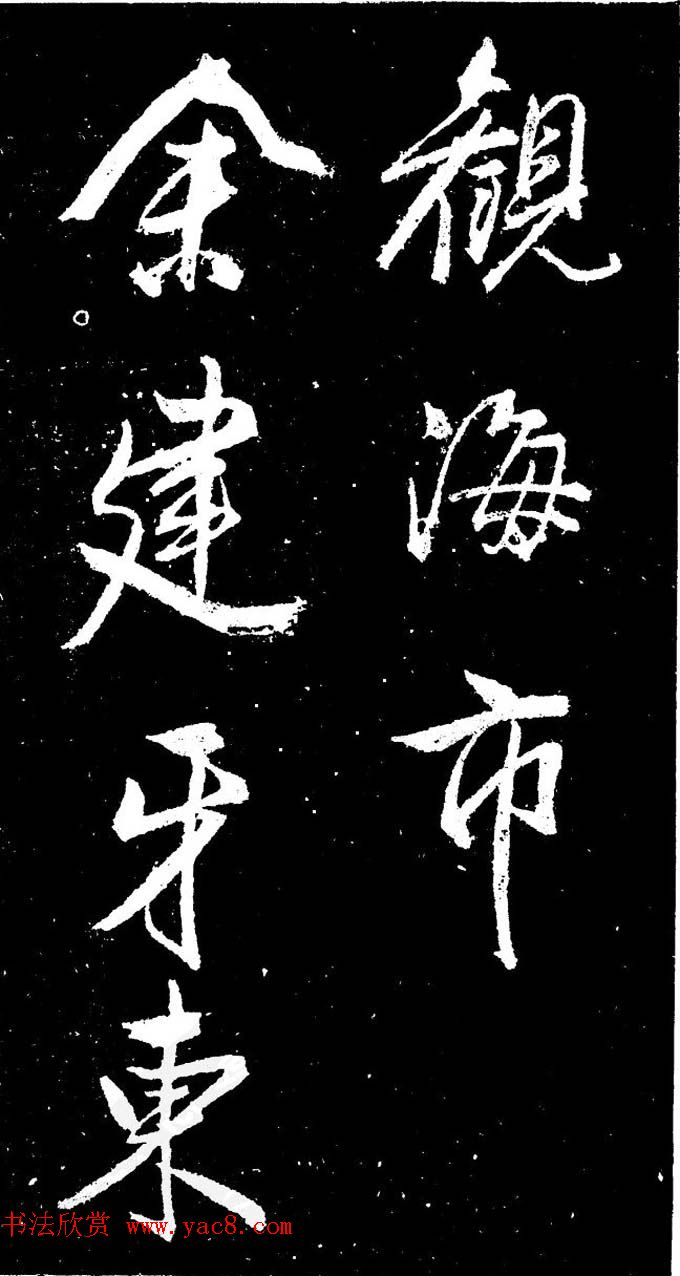 觀海市
余建牙東
书法欣赏 www.yac8.com